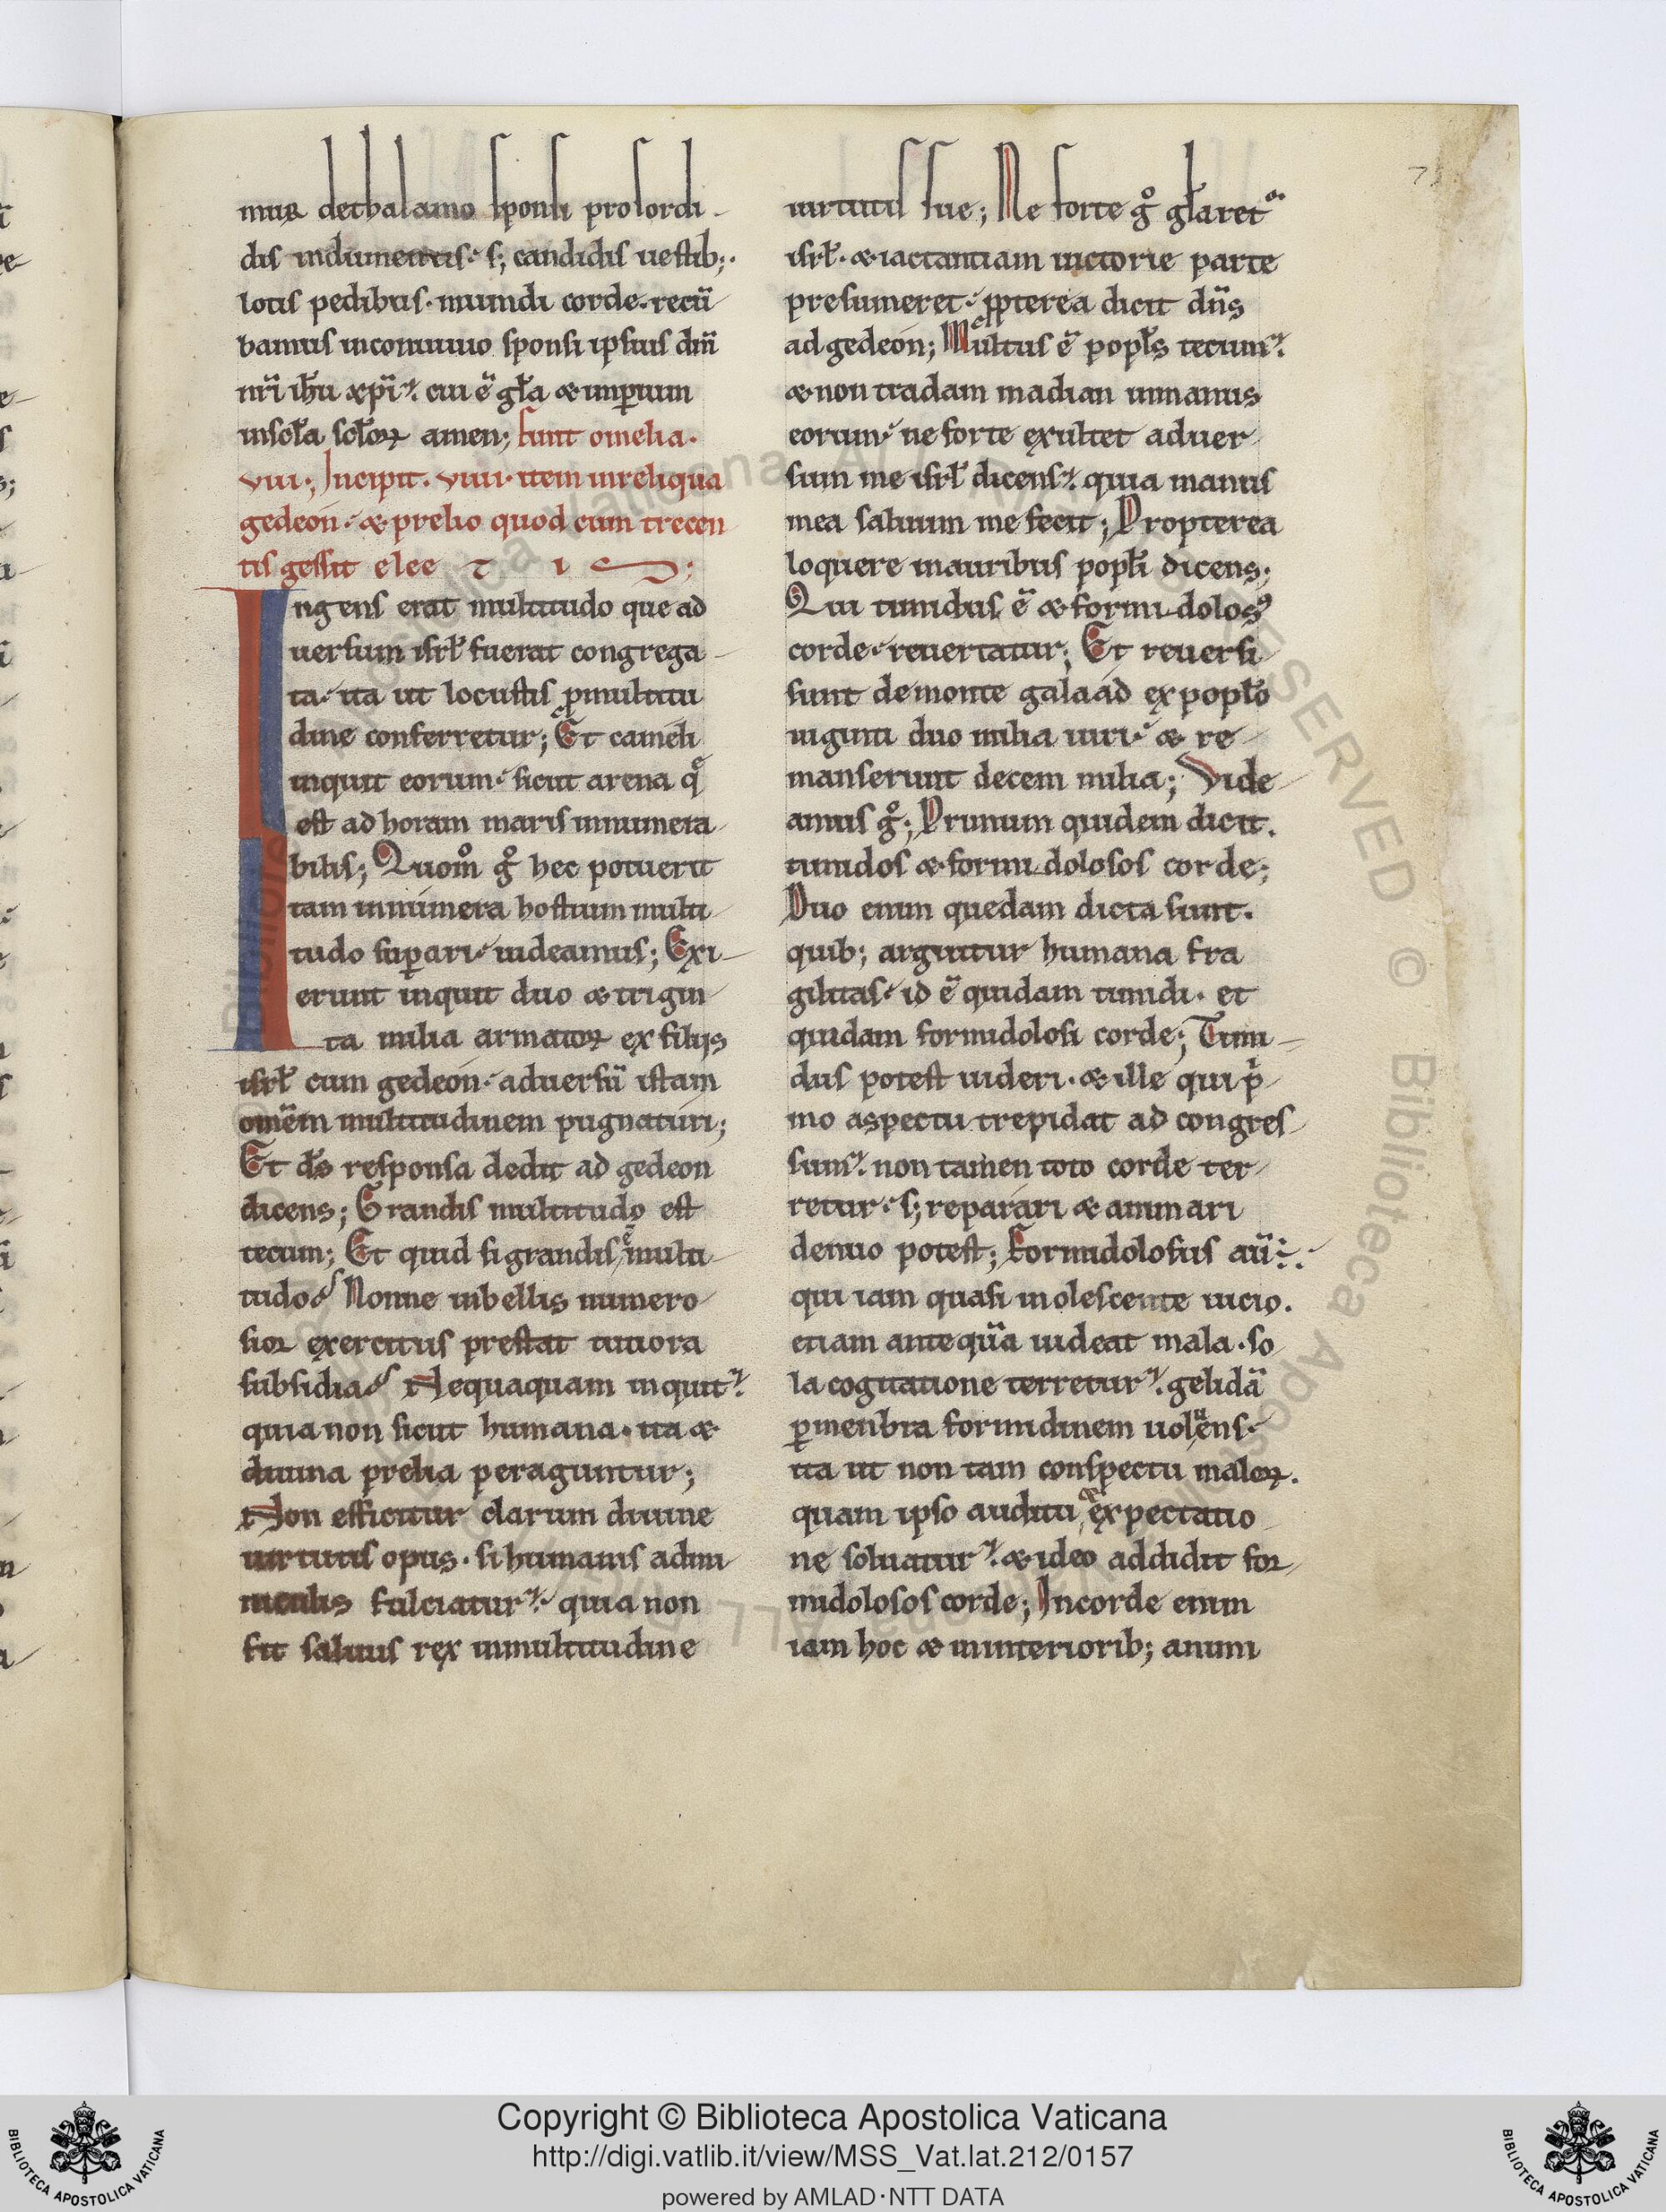 mur dethalamo sponsi pro sordi-
dis indumentis· s; candidis uestib;·
lotis pedibus· mundi corde· recū
bamus inconuiuio sponsi ipsius dn̄i
nr̄i ih̄u xp̄i· cui ē gl̄a & imꝑium
inscl̄a scl̄oꝝ amen; finit omelia·
viii·; Incipit· viiii· item inreliqua
gedeon· & prelio quod cum trecen
tis gessit e lee t i s;
Ingens erat multitudo que ad
uersum isrl̄ fuerat congrega-
ta· ita ut locustis ꝓmultitu
dine conferretur; Et cameli
inquit eorum· sicut arena q̄
est ad horam maris innumera
bilis; Quom̊ g̊ hec potuerit
tam innumera hostium multi
tudo suꝑari· uideamus; Exi-
erunt inquit duo & trigin
ta milia armatoꝝ ex filijs
isrl̄ cum gedeon· aduersū istam
omēm multitudinem pugnaturi;
Et ds̄ responsa dedit ad gedeon
dicens; Grandis multitudo est
tecum; Et quid si grandis ē multi
tudo? Nonne inbellis numero
sior exercitus prestat tutiora
subsidia? Nequaquam inquit·
quia non sicut humana· ita &
diuina prelia peraguntur;
Non efficitur clarum diuine
uirtutis opus· si humanis admi
niculis fulciatur· quia non
fit saluus rex inmultitudine
uirtutis sue; Ne forte g̊ gl̄aret᷑
isrl̄· & iactantiam uictorie parte
presumeret· ꝓpterea dicit dn̄s
ad gedeon; Multus ē popl̄s tecum·
& non tradam madian inmanus
eorum· ne forte exultet aduer
sum me isrl̄ dicens· quia manus
mea saluum me fecit; Propterea
loquere inauribus popl̄i dicens;
Qui timidus ē & formi-dolosꝰ
corde· reuertatur; Et reuersi
sunt demonte galaad ex popl̄o
uiginti duo milia uiri· & re-
manserunt decem milia; Vide-
amus g̊; Primum quidem dicit.
timidos & formi-dolosos corde;
Duo enim quedam dicta sunt.
quib; arguitur humana fra
gilitas· id ē quidam timidi· et
quidam formidolosi corde; Timi-
dus potest uideri· & ille qui p̍
mo aspectu trepidat ad congres
sum· non tamen toto corde ter
retur· s; reparari & animari
denuo potest; Formidolosus aū·
qui iam quasi inolescente uicio.
etiam ante quā uideat mala· so
la cogitatione terretur· gelidā
ꝑmenbra formidinem uoluens·
ita ut non tam conspectu maloꝝ.
quam ipso auditu & expectatio
ne soluatur· & ideo addidit for
midolosos corde; Incorde enim
iam hoc & ininteriorib; animi
Copyright © Biblioteca Apostolica Vaticana
http://digi.vatlib.it/view/MSS_Vat.lat.212/0157
powered by AMLAD·NTT DATA
BIBLIOTECA APOSTOLICA VATICANA
BIBLIOTECA APOSTOLICA VATICANA